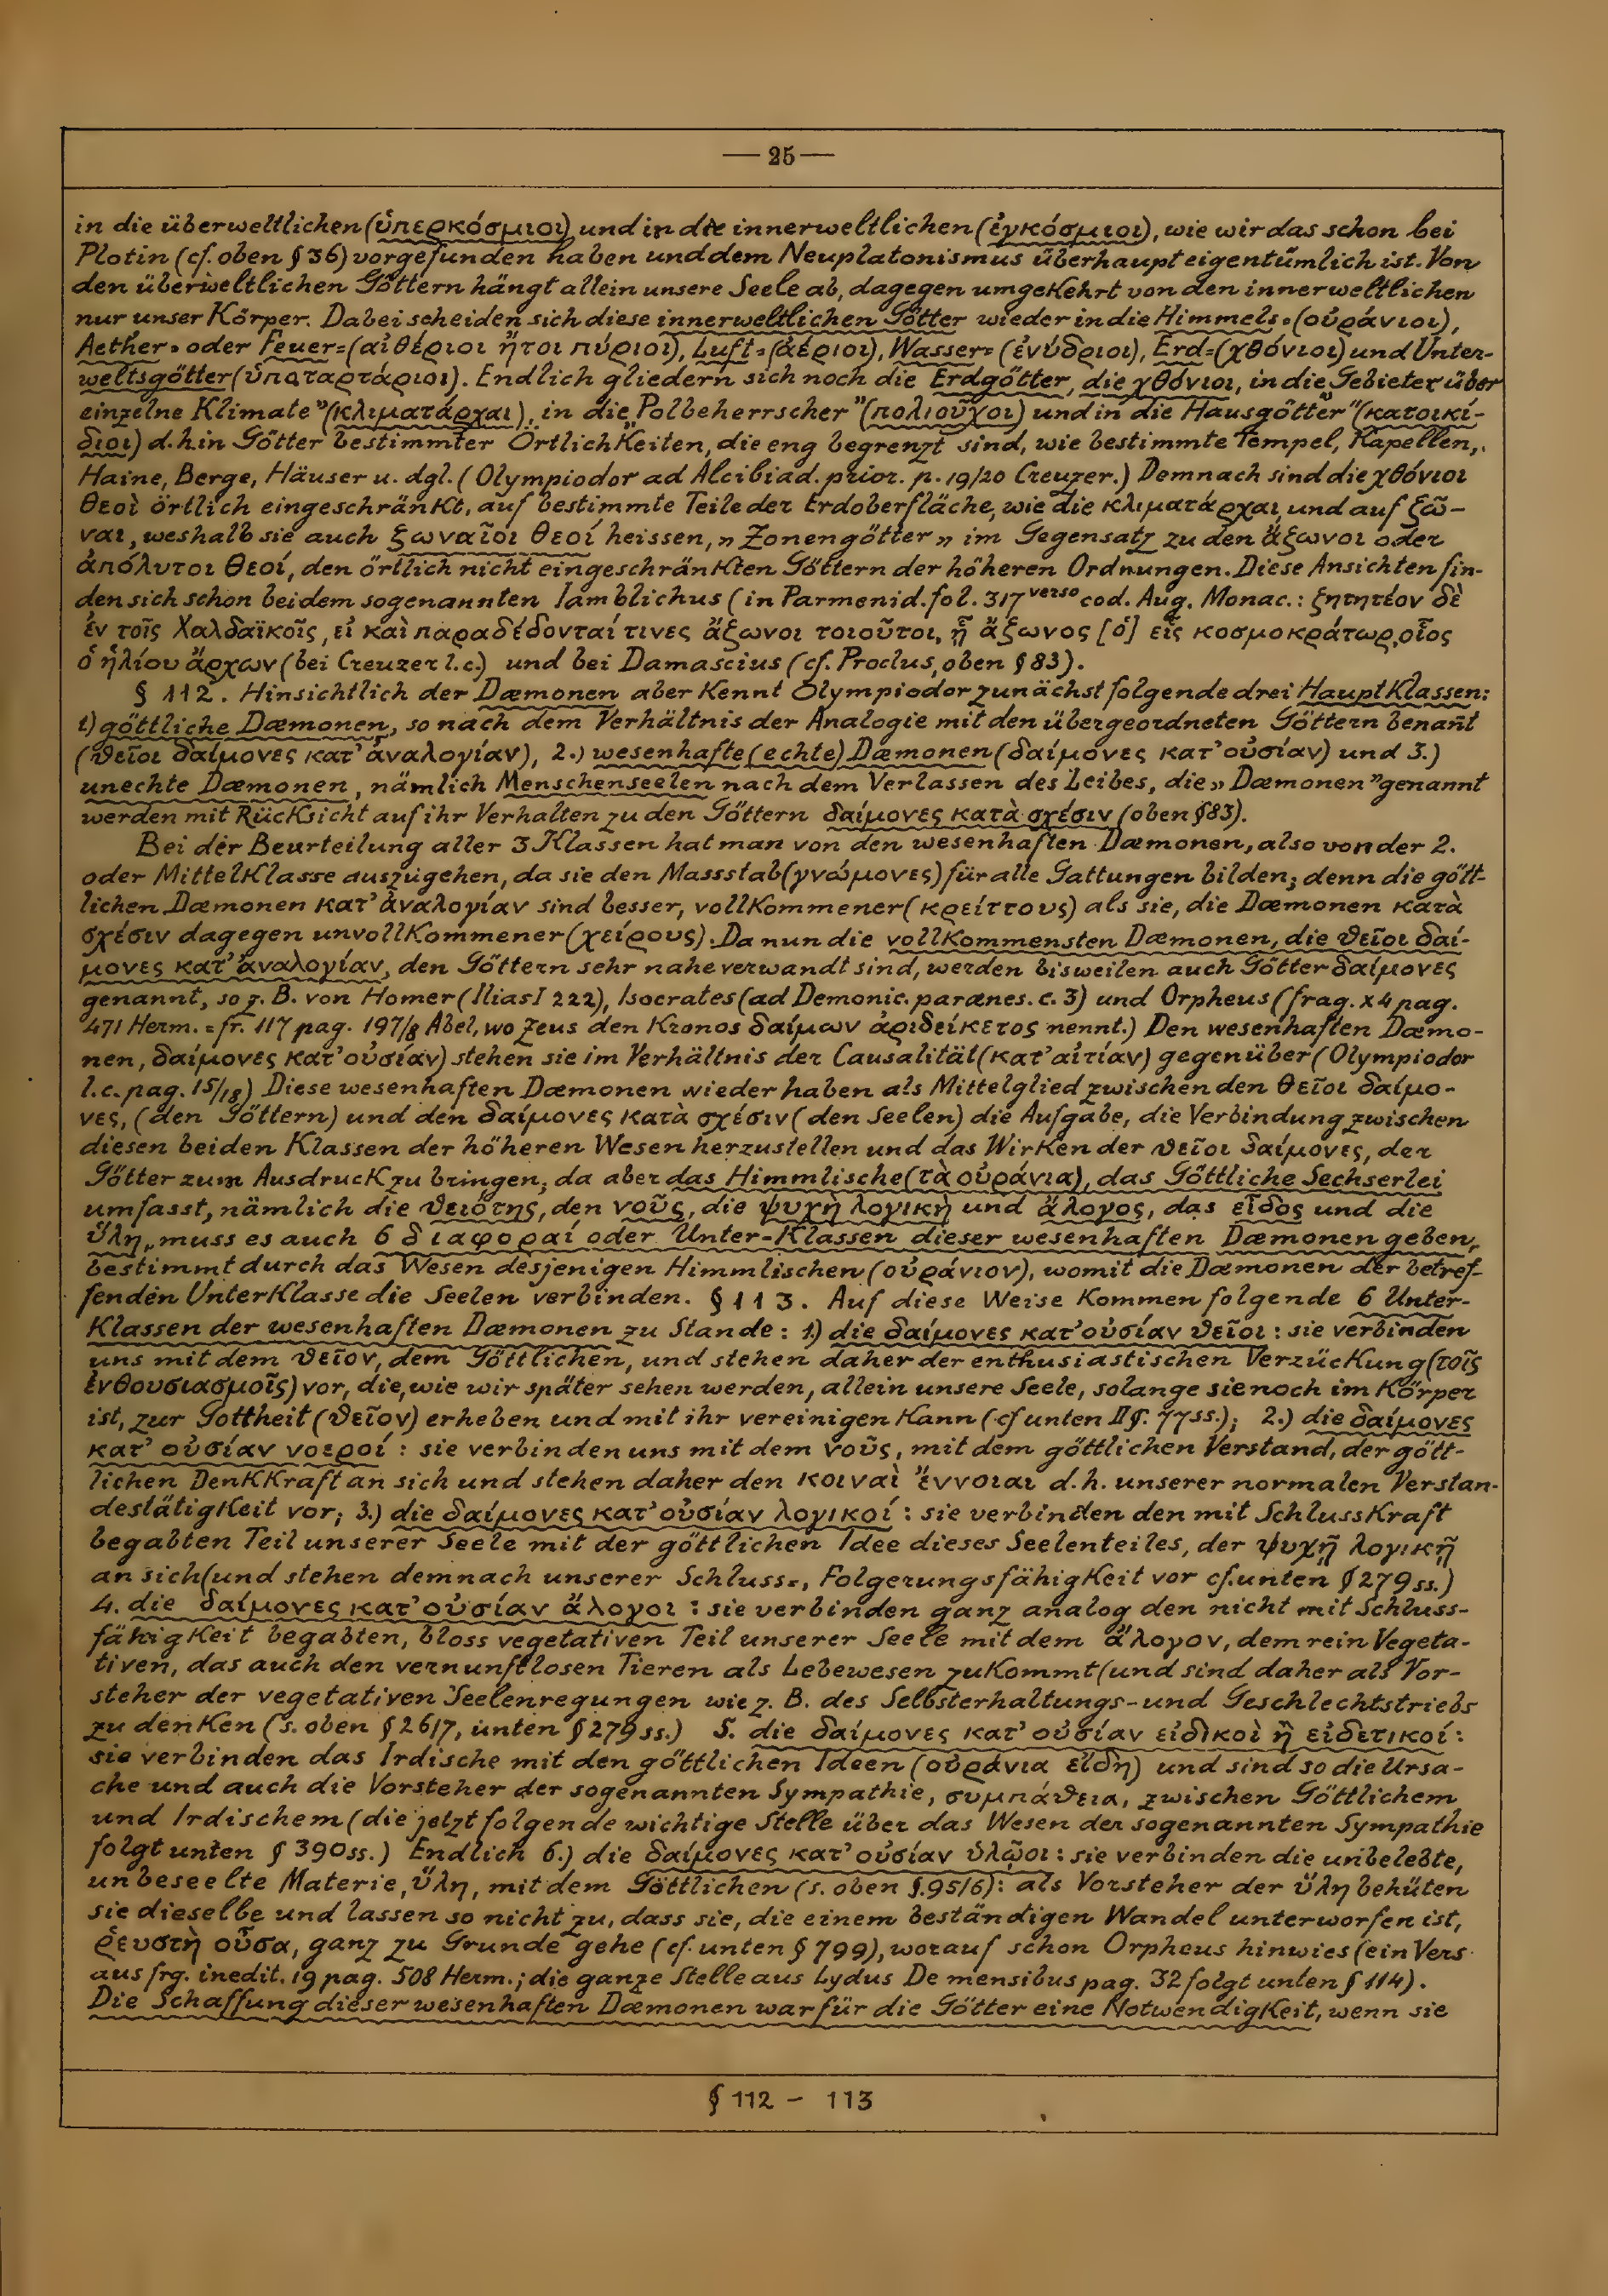 — 25 —
in die überweltlichen (ὑπερκόσμιοι) und in die innerweltlichen (ἐγκόσμιοι), wie wir das schon bei
Plotin (cf. oben § 36) vorgefunden haben und dem Neuplatonismus überhaupt eigentümlich ist. Von
den überweltlichen Göttern hängt allein unsere Seele ab, dagegen umgekehrt von den innerweltlichen
nur unser Körper. Dabei scheiden sich diese innerweltlichen Götter wieder in die Himmels= (οὐράνιοι),
Aether= oder Feuer= (αἰθέριοι ἤτοι πύριοι), Luft= (ἀέριοι), Wasser= (ἐνύδριοι), Erd= (χθόνιοι) und Unter-
weltsgötter (ὑποταρτάριοι). Endlich gliedern sich noch die Erdgötter, die χθόνιοι, in die „Gebieter über
einzelne Klimate" (κλιματάρχαι), in die „Polbeherrscher" (πολιοῦχοι) und in die „Hausgötter" (κατοικί-
διοι) d.h. in Götter bestimmter Örtlichkeiten, die eng begrenzt sind, wie bestimmte Tempel, Kapellen,
Haine, Berge, Häuser u. dgl. (Olympiodor ad Alcibiad. prior. p. 19/20 Creuzer.) Demnach sind die χθόνιοι
θεοὶ örtlich eingeschränkt, auf bestimmte Teile der Erdoberfläche, wie die κλιματάρχαι, und auf ζῶ-
ναι, weshalb sie auch ζωναῖοι θεοί heissen, „Zonengötter" im Gegensatz zu den ἄζωνοι oder
ἀπόλυτοι θεοί, den örtlich nicht eingeschränkten Göttern der höheren Ordnungen. Diese Ansichten fin-
den sich schon bei dem sogenannten Iamblichus (in Parmenid. fol. 317 verso cod. Aug. Monac.: ζητητέον δὲ
ἐν τοῖς Χαλδαϊκοῖς, εἰ καὶ παραδέδονταί τινες ἄζωνοι τοιοῦτοι, ᾗ ἄζωνος [ὁ] εἷς κοσμοκράτωρ, οἷος
ὁ ἡλίου ἄρχων (bei Creuzer l.c.) und bei Damascius (cf. Proclus, oben § 83).
§ 112. Hinsichtlich der Dæmonen aber kennt Olympiodor zunächst folgende drei Hauptklassen:
1) göttliche Dæmonen, so nach dem Verhältnis der Analogie mit den übergeordneten Göttern benannt
(θεῖοι δαίμονες κατ' ἀναλογίαν), 2.) wesenhafte (echte) Dæmonen (δαίμονες κατ' οὐσίαν) und 3.)
unechte Dæmonen, nämlich Menschenseelen nach dem Verlassen des Leibes, die „Dæmonen" genannt
werden mit Rücksicht auf ihr Verhalten zu den Göttern δαίμονες κατὰ σχέσιν (oben § 83).
Bei der Beurteilung aller 3 Klassen hat man von den wesenhaften Dæmonen, also von der 2.
oder Mittelklasse auszugehen, da sie den Massstab (γνώμονες) für alle Gattungen bilden; denn die gött-
lichen Dæmonen κατ' ἀναλογίαν sind besser, vollkommener (κρείττους) als sie, die Dæmonen κατὰ
σχέσιν dagegen unvollkommener (χείρους). Da nun die vollkommensten Dæmonen, die θεῖοι δαί-
μονες κατ' ἀναλογίαν, den Göttern sehr nahe verwandt sind, werden bisweilen auch Götter δαίμονες
genannt, so z. B. von Homer (Ilias I 222), Isocrates (ad Demonic. parænes. c. 3) und Orpheus (frag. X 4 pag.
471 Herm. = fr. 117 pag. 197/8 Abel, wo Zeus den Kronos δαίμων ἀριδείκετος nennt.) Den wesenhaften Dæmo-
nen, δαίμονες κατ' οὐσίαν) stehen sie im Verhältnis der Causalität (κατ' αἰτίαν) gegenüber (Olympiodor
l.c. pag. 15/18) Diese wesenhaften Dæmonen wieder haben als Mittelglied zwischen den θεῖοι δαίμο-
νες, (den Göttern) und den δαίμονες κατὰ σχέσιν (den Seelen) die Aufgabe, die Verbindung zwischen
diesen beiden Klassen der höheren Wesen herzustellen und das Wirken der θεῖοι δαίμονες, der
Götter zum Ausdruck zu bringen; da aber das Himmlische (τὰ οὐράνια), das Göttliche Sechserlei
umfasst, nämlich die θειότης, den νοῦς, die ψυχὴ λογικὴ und ἄλογος, das εἶδος und die
ὕλη, muss es auch 6 διαφοραί oder Unter-Klassen dieser wesenhaften Dæmonen geben,
bestimmt durch das Wesen desjenigen Himmlischen (οὐράνιον), womit die Dæmonen der betref-
fenden Unterklasse die Seelen verbinden. § 113. Auf diese Weise kommen folgende 6 Unter-
klassen der wesenhaften Dæmonen zu Stande: 1) die δαίμονες κατ' οὐσίαν θεῖοι: sie verbinden
uns mit dem θεῖον, dem Göttlichen, und stehen daher der enthusiastischen Verzückung (τοῖς
ἐνθουσιασμοῖς) vor, die, wie wir später sehen werden, allein unsere Seele, solange sie noch im Körper
ist, zur Gottheit (θεῖον) erheben und mit ihr vereinigen kann (cf unten II §. 77 ss.); 2.) die δαίμονες
κατ' οὐσίαν νοεροί: sie verbinden uns mit dem νοῦς, mit dem göttlichen Verstand, der gött-
lichen Denkkraft an sich und stehen daher den κοιναὶ ἔννοιαι d.h. unserer normalen Verstan-
destätigkeit vor; 3.) die δαίμονες κατ' οὐσίαν λογικοί: sie verbinden den mit Schlusskraft
begabten Teil unserer Seele mit der göttlichen Idee dieses Seelenteiles, der ψυχῇ λογικῇ
an sich (und stehen demnach unserer Schluss=, Folgerungsfähigkeit vor cf. unten § 279 ss.)
4. die δαίμονες κατ' οὐσίαν ἄλογοι: sie verbinden ganz analog den nicht mit Schluss-
fähigkeit begabten, bloss vegetativen Teil unserer Seele mit dem ἄλογον, dem rein Vegeta-
tiven, das auch den vernunftlosen Tieren als Lebewesen zukommt (und sind daher als Vor-
steher der vegetativen Seelenregungen wie z. B. des Selbsterhaltungs- und Geschlechtstriebs
zu denken (s. oben § 26/7, unten § 279 ss.) 5. die δαίμονες κατ' οὐσίαν εἰδικοὶ ἢ εἰδετικοί:
sie verbinden das Irdische mit den göttlichen Ideen (οὐράνια εἴδη) und sind so die Ursa-
che und auch die Vorsteher der sogenannten Sympathie, συμπάθεια, zwischen Göttlichem
und Irdischem (die jetzt folgende wichtige Stelle über das Wesen der sogenannten Sympathie
folgt unten § 390 ss.) Endlich 6.) die δαίμονες κατ' οὐσίαν ὑλῷοι: sie verbinden die unbelebte,
unbeseelte Materie, ὕλη, mit dem Göttlichen (s. oben §. 95/6): als Vorsteher der ὕλη behüten
sie dieselbe und lassen so nicht zu, dass sie, die einem beständigen Wandel unterworfen ist,
ῥευστὴ οὖσα, ganz zu Grunde gehe (cf. unten § 799), worauf schon Orpheus hinwies (ein Vers
aus frg. inedit. 19 pag. 508 Herm.; die ganze Stelle aus Lydus De mensibus pag. 32 folgt unten § 114).
Die Schaffung dieser wesenhaften Dæmonen war für die Götter eine Notwendigkeit, wenn sie
§ 112 - 113